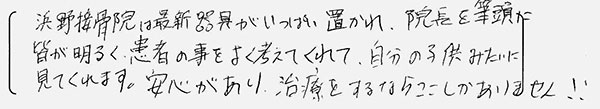 浜野接骨院は最新器具がいっぱい置かれ、院長を筆頭に
皆が明るく、患者の事をよく考えてくれて、自分の子供みたいに
見てくれます。安心があり、治療をするならここしかありません!!